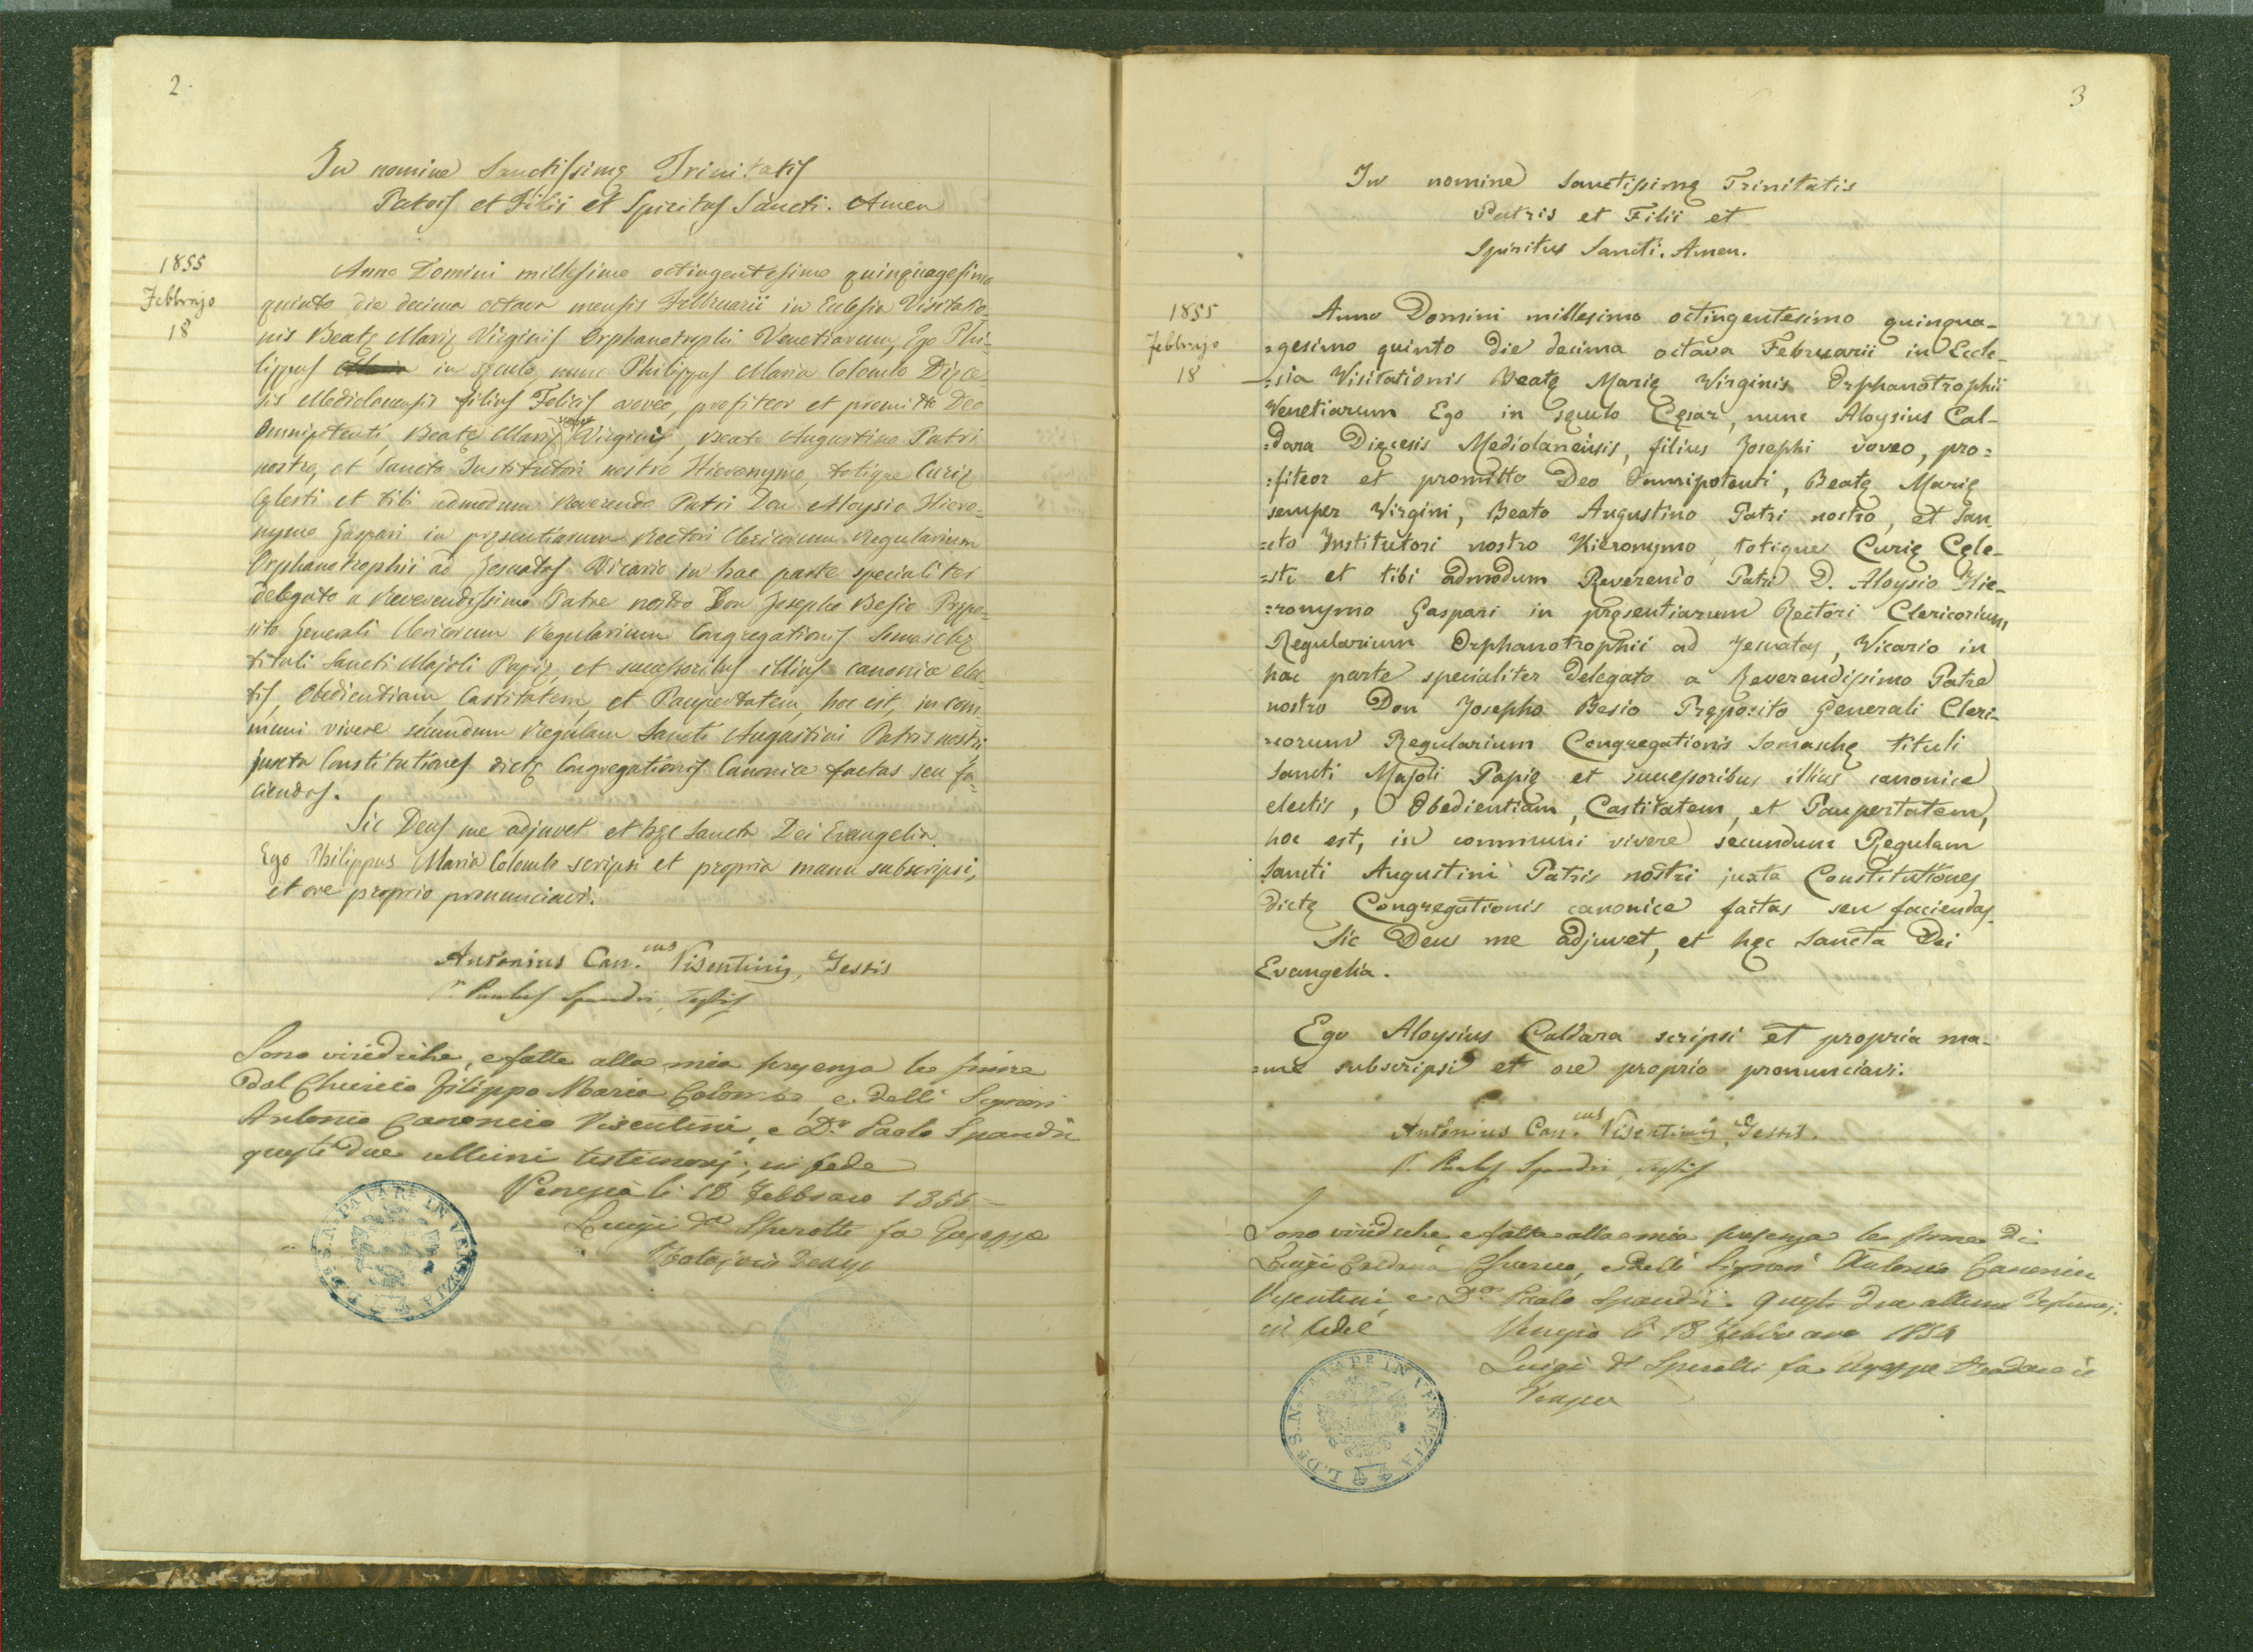 2.
In nomine Sanctissimę Trinitatis
Patris et Filii et Spiritus Sancti. Amen
1855
Febbrajo
18
Anno Domini millesimo octingentesimo quinquagesimo
quinto die decima octava mensis Februarii in Ecclesia Visitatio=
nis Beatę Marię Virginis Orphanotrophii Venetiarum, Ego Phi=
lippus in sęculo nunc Philippus Maria Colombo Dięce=
sis Mediolanensis filius Felicis voveo, profiteor et promitto Deo
Omnipotenti, Beatę Marię semper Virgini, Beato Augustino Patri
nostro, et Sancto Institutori nostro Hieronymo, totique Curię
Cęlesti et tibi admodum Reverendo Patri Don Aloysio Hiero=
nymo Gaspari in pręsentiarum Rectori Clericorum Regularium
Orphanotrophii ad Jesuatas Vicario in hac parte specialiter
delegato a Reverendissimo Patre nostro Don Josepho Besio Prępo=
sito Generali Clericorum Regularium Congregationis Somaschę
tituli Sancti Majoli Papię, et successoribus illius canonice elec=
tis, Obedientiam, Castitatem, et Paupertatem, hoc est, in com=
muni vivere secundum Regulam Sancti Augustini Patris nostri
juxta Constitutiones dictę Congregationis Canonice factas seu fa=
ciendas.
Sic Deus me adjuvet et hęc Sancta Dei Evangelia.
Ego Philippus Maria Colombo scripsi et propria manu subscripsi,
et ore proprio pronunciavi.
Antonius Can.cus Visentinis, Testis
Paulus Spandri, Testis
Sono viridiche, e fatte alla mia presenza le firme
dal Chierico Filippo Maria Colombo, e delli Signori
Antonio Canonico Visentini, e D.r Paolo Spandri
questi due ultimi testimonj; in fede
Venezia li 18 Febbraro 1855
Luigi Dr Sperotti fu Giuseppe
IN VENEZIA
3
In nomine Sanctissimę Trinitatis
Patris et Filii et
Spiritus Sancti. Amen.
1855
Febbrajo
18
Anno Domini millesimo octingentesimo quinqua-
=gesimo quinto die decima octava Februarii in Eccle-
=sia Visitationis Beatę Marię Virginis Orphanotrophii
Venetiarum Ego in sęculo Cęsar, nunc Aloysius Cal-
=dara Dięcesis Mediolanensis, filius Josephi voveo, pro=
=fiteor et promitto Deo Omnipotenti, Beatę Marię
semper Virgini, Beato Augustino Patri nostro, et San-
=cto Institutori nostro Hieronymo, totique Curię Cęle-
=sti et tibi admodum Reverendo Patri D. Aloysio Hie-
=ronymo Gaspari in pręsentiarum Rectori Clericorum
Regularium Orphanotrophii ad Jesuatas, Vicario in
hac parte specialiter delegato a Reverendissimo Patre
nostro Don Josepho Besio Pręposito Generali Cleri-
=corum Regularium Congregationis Somaschę tituli
Sancti Majoli Papię et successoribus illius canonice
electis, Obedientiam, Castitatem, et Paupertatem,
hoc est, in communi vivere secundum Regulam
Sancti Augustini Patris nostri juxta Constitutiones
dictę Congregationis canonice factas seu faciendas.
Sic Deus me adjuvet, et hęc Sancta Dei
Evangelia.
Ego Aloysius Caldara scripsi et propria ma-
=nu subscripsi et ore proprio pronunciavi.
Antonius Can.cus Visentinis, Testis.
Paulus Spandri, Testis
Sono viridiche e fatte alla mia presenza le firme di
Luigi Caldara Chierico, e delli Signori Antonio Canonico
Visentini, e D.r Paolo Spandri. Questi due ultimi Testimonj.
in fede
Venezia li 18 Febbraro
Luigi Dr Sperotti fu Giuseppe
Venezia
IN VENEZIA